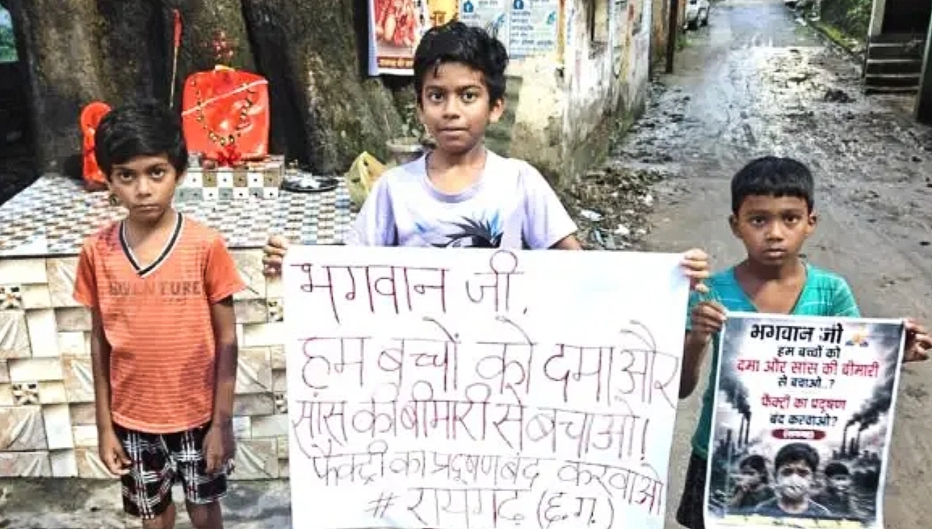 भगवान जी,
हम बच्चों को दमा और
सांस की बीमारी से बचाओ!
फैक्ट्री का प्रदूषण बंद करवाओ
# रायगढ़ (छ.ग.)
भगवान जी
हम बच्चों को
दमा और सांस की बीमारी
से बचाओ..?
फैक्ट्री का प्रदूषण
बंद करवाओ?